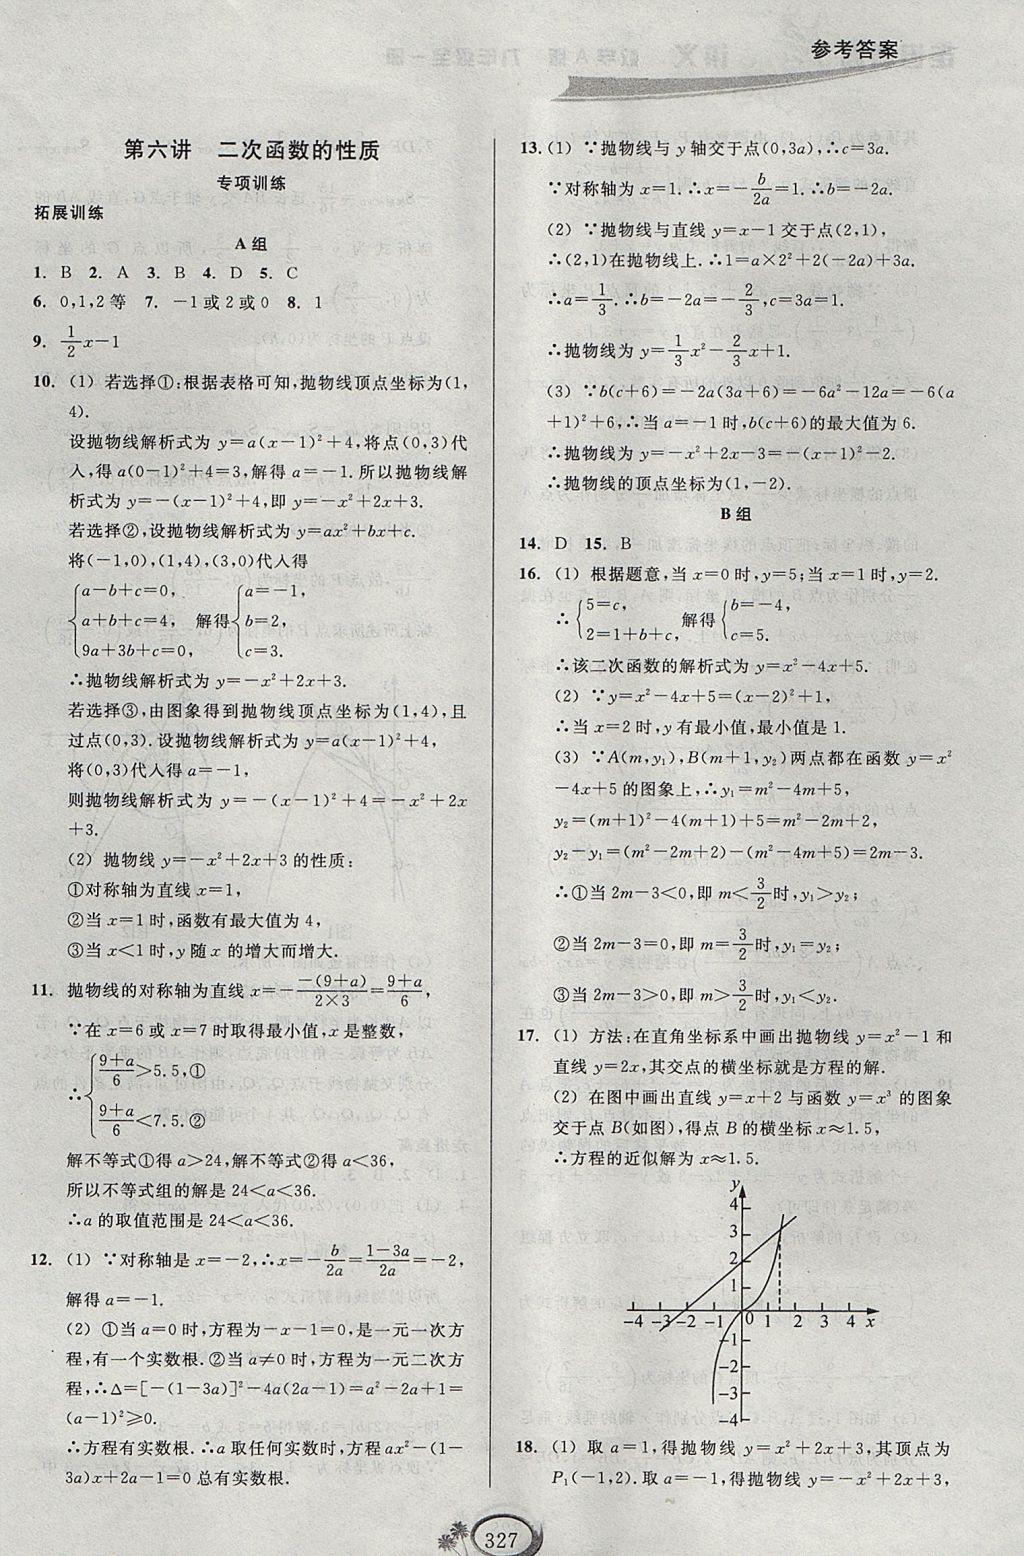 参考答案
第六讲　二次函数的性质
专项训练
拓展训练
A 组
1. B　2. A　3. B　4. D　5. C
6. 0,1,2等　7. －1或2或0　8. 1
9. 1/2 x－1
10. (1) 若选择①:根据表格可知,抛物线顶点坐标为(1,
4).
设抛物线解析式为 y=a(x－1)²+4,将点(0,3)代
人,得 a(0－1)²+4=3,解得 a=－1. 所以抛物线解
析式为 y=－(x－1)²+4,即 y=－x²+2x+3.
若选择②,设抛物线解析式为 y=ax²+bx+c.
将(－1,0),(1,4),(3,0)代人得
{a－b+c=0,　{a=－1,
a+b+c=4,　解得 b=2,
9a+3b+c=0.　c=3.
∴抛物线解析式为 y=－x²+2x+3.
若选择③,由图象得到抛物线顶点坐标为(1,4),且
过点(0,3). 设抛物线解析式为 y=a(x－1)²+4,
将(0,3)代人得 a=－1,
则抛物线解析式为 y=－(x－1)²+4=－x²+2x
+3.
(2) 抛物线 y=－x²+2x+3 的性质:
①对称轴为直线 x=1,
②当 x=1 时,函数有最大值为 4,
③当 x<1 时,y 随 x 的增大而增大.
11. 抛物线的对称轴为直线 x=－ －(9+a)/2×3 = 9+a/6,
∵在 x=6 或 x=7 时取得最小值,x 是整数,
∴{9+a/6>5.5,①
9+a/6<7.5.②
解不等式①得 a>24,解不等式②得 a<36,
所以不等式组的解是 24<a<36.
∴a 的取值范围是 24<a<36.
12. (1) ∵对称轴是 x=－2,∴x=－b/2a=1－3a/2a=－2,
解得 a=－1.
(2) ①当 a=0 时,方程为－x－1=0,是一元一次方
程,有一个实数根. ②当 a≠0 时,方程为一元二次方
程,∴Δ=[－(1－3a)]²－4a(2a－1)=a²－2a+1=
(a－1)²≥0.
∴方程有实数根. ∴a 取任何实数时,方程 ax²－(1－
3a)x+2a－1=0 总有实数根.
13. (1) ∵抛物线与 y 轴交于点(0,3a),∴c=3a.
∵对称轴为 x=1. ∴x=－b/2a=1. ∴b=－2a.
(2) ∵抛物线与直线 y=x－1 交于点(2,1),
∴(2,1)在抛物线上. ∴1=a×2²+2(－2a)+3a.
∴a=1/3. ∴b=－2a=－2/3,c=3a=1.
∴抛物线为 y=1/3x²－2/3x+1.
(3) ∵b(c+6)=－2a(3a+6)=－6a²－12a=－6(a
+1)²+6,∴当 a=－1 时,b(c+6)的最大值为 6.
∴抛物线为 y=－x²+2x－3=－(x－1)²－2.
∴抛物线的顶点坐标为(1,－2).
B 组
14. D　15. B
16. (1) 根据题意,当 x=0 时,y=5;当 x=1 时,y=2.
∴{5=c,　解得{b=－4,
2=1+b+c,　c=5.
∴该二次函数的解析式为 y=x²－4x+5.
(2) ∵y=x²－4x+5=(x－2)²+1,
∴当 x=2 时,y 有最小值,最小值是 1.
(3) ∵A(m,y₁),B(m+1,y₂)两点都在函数 y=x²
－4x+5 的图象上,∴y₁=m²－4m+5,
y₂=(m+1)²－4(m+1)+5=m²－2m+2,
y₂－y₁=(m²－2m+2)－(m²－4m+5)=2m－3.
∴①当 2m－3<0,即 m<3/2时,y₁>y₂;
②当 2m－3=0,即 m=3/2时,y₁=y₂;
③当 2m－3>0,即 m>3/2时,y₁<y₂.
17. (1) 方法:在直角坐标系中画出抛物线 y=x²－1 和
直线 y=2x,其交点的横坐标就是方程的解.
(2) 在图中画出直线 y=x+2 与函数 y=x³ 的图象
交于点 B(如图),得点 B 的横坐标 x≈1.5,
∴方程的近似解为 x≈1.5.
y
4
3
2
1
－4 －3 －2 －1 0 1 2 3 4 x
－1
－2
－3
－4
18. (1) 取 a=1,得抛物线 y=x²+2x+3,其顶点为
P₁(－1,2). 取 a=－1,得抛物线 y=－x²+2x+3,
327